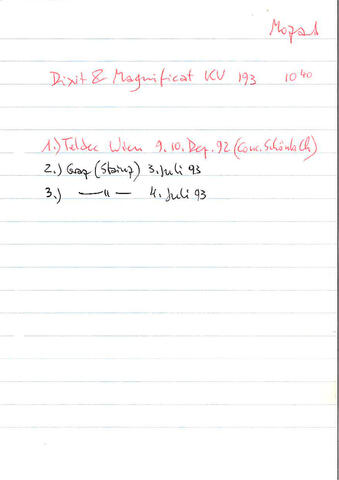 Mozart
Dixit & Magnificat KV 193 10 40
1.) Teldec Wien 9. 10. Dez. 92 (Conc. Schönbach)
2.) Graz (Stainz) 3. Juli 93
3.) —"— 4. Juli 93